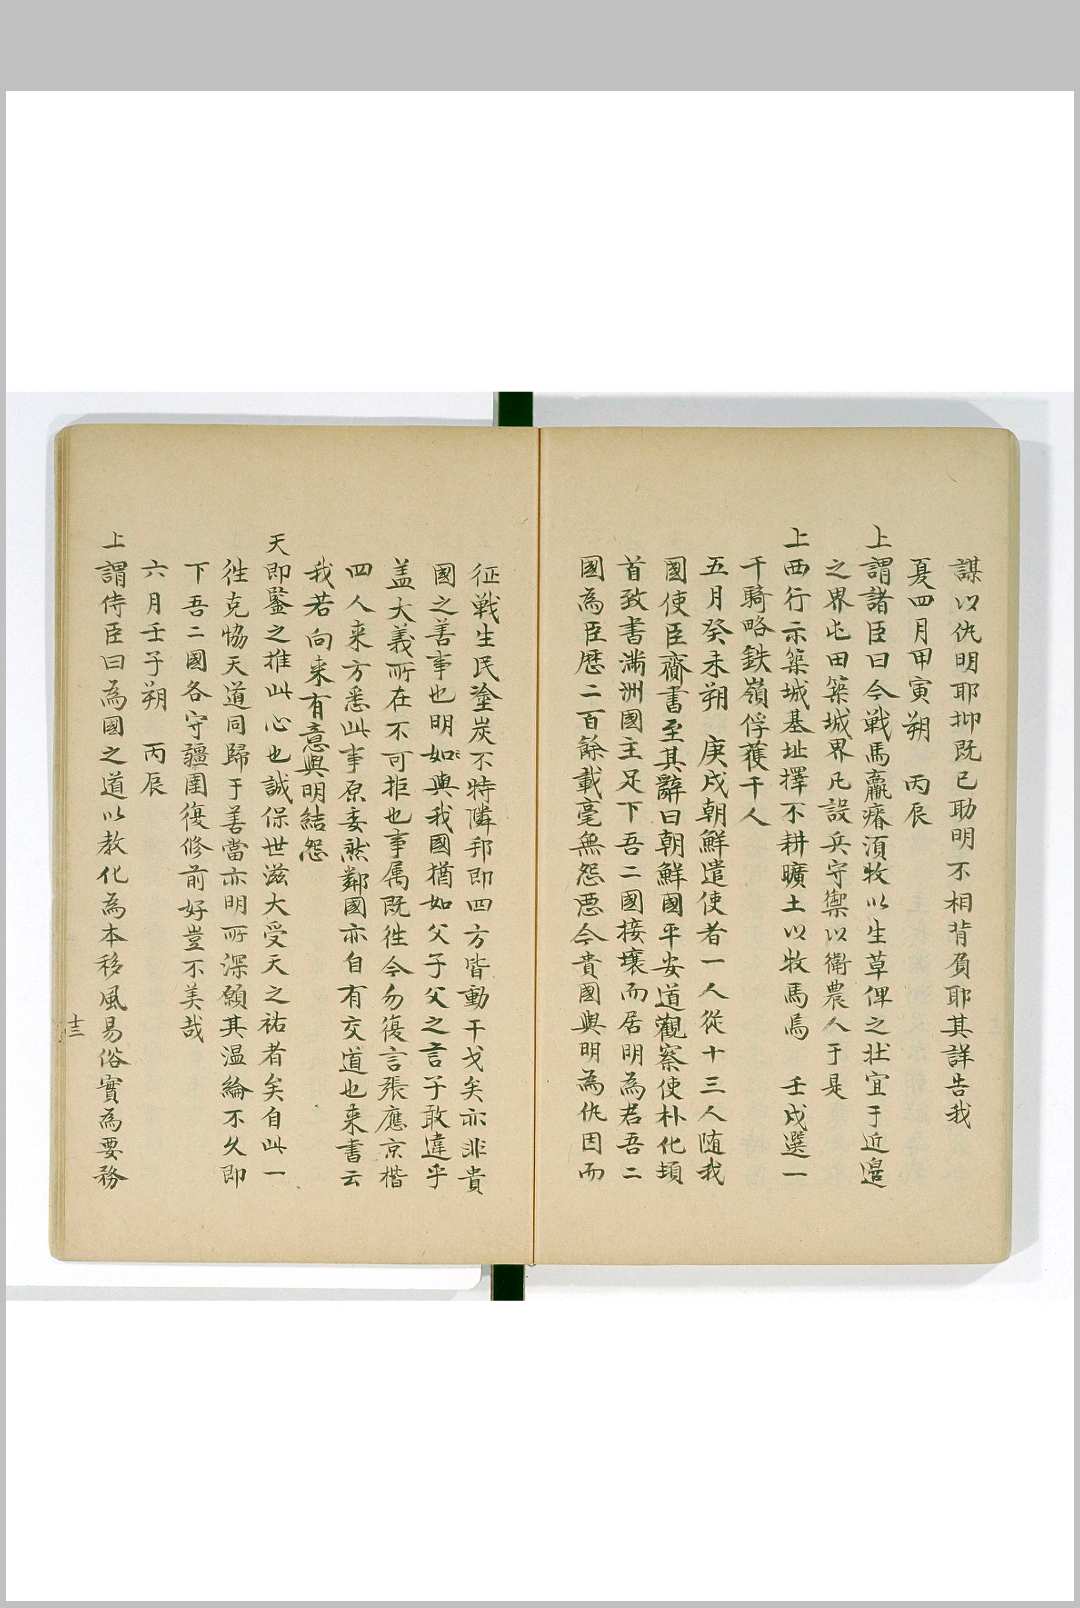 謀以仇明耶抑既已助明不相背負耶其詳告我
夏四月甲寅朔　丙辰
上謂諸臣曰今戦馬羸瘠湏牧以生草俾之壮宜于近邉
之界屯田築城界凡設兵守禦以衛農人于是
上西行示築城基址擇不耕曠土以牧馬焉　壬戌選一
千騎略鉄嶺俘獲千人
五月癸未朔　庚戌朝鮮遣使者一人從十三人随我
國使臣齎書至其辭曰朝鮮國平安道觀察使朴化頓
首致書滿洲國主足下吾二國接壤而居明為君吾二
國為臣歴二百餘載毫無怨悪今貴國與明為仇因而
征戦生民塗炭不特隣邦即四方皆動干戈矣亦非貴
國之善事也明與我國猶如父子父之言子敢違乎
盖大義所在不可拒也事属既徃今勿復言張應京楷
四人来方悉此事原委然鄰國亦自有交道也来書云
我若向来有意與明結怨
天即鑒之推此心也誠保世滋大受天之祐者矣自此一
徃克恊天道同歸于善當亦明所深願其温綸不久即
下吾二國各守疆圉復修前好豈不美哉
六月壬子朔　丙辰
上謂侍臣曰為國之道以教化為本移風易俗實為要務
十三